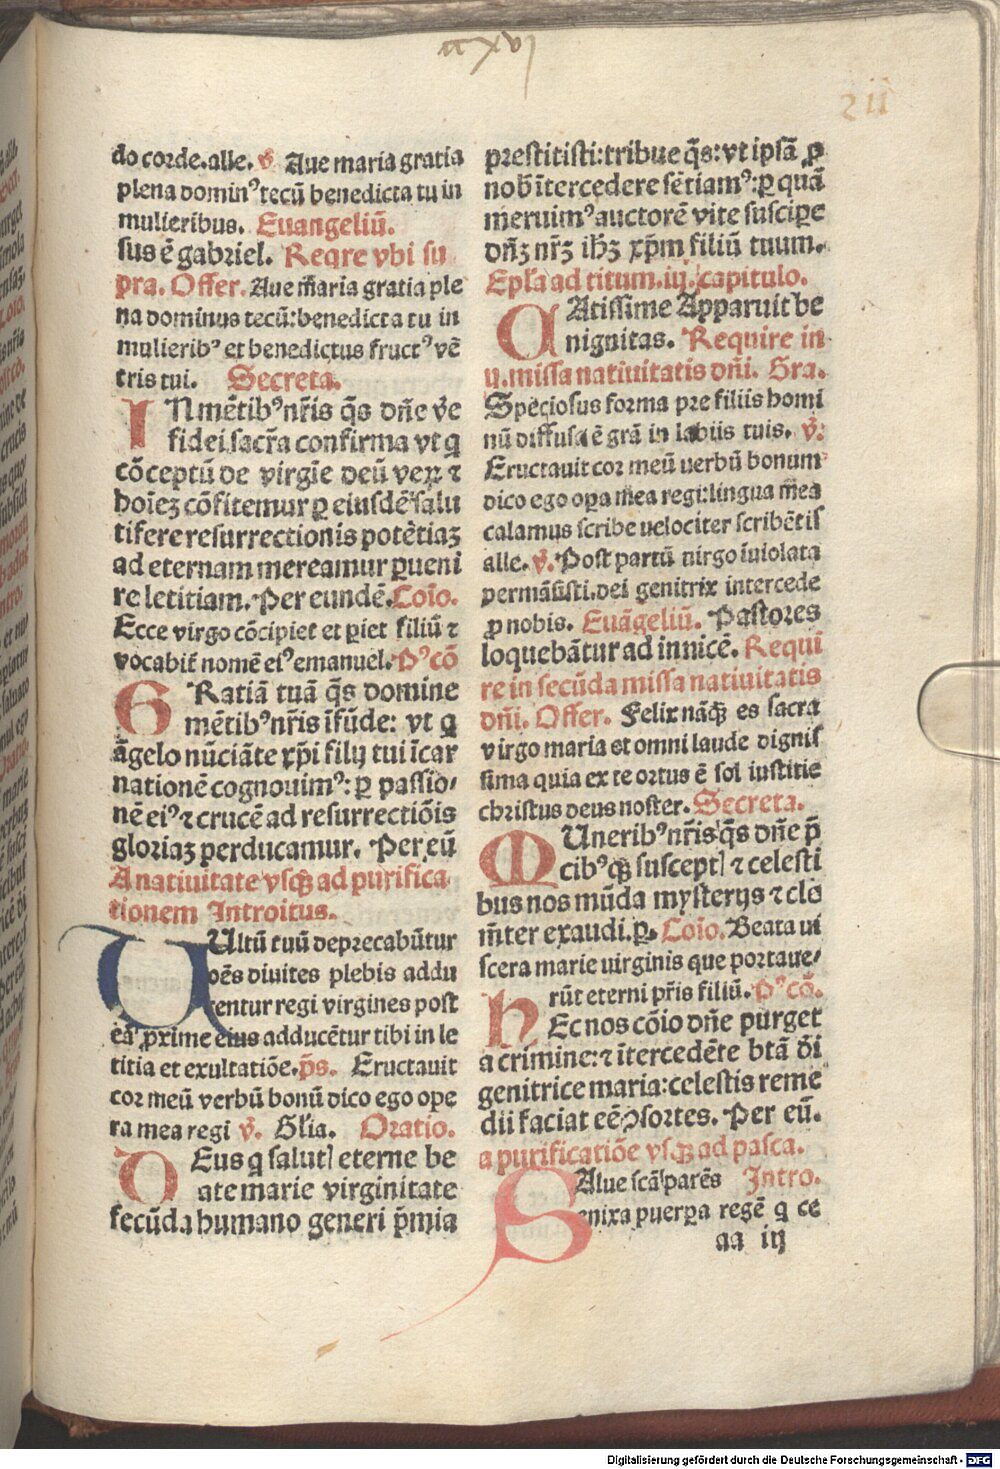 a xvj
211
do corde.alle. v̄ Aue maria gratia
plena domin⁹ tecū benedicta tu in
mulieribus. Euangeliū.
sus ē gabriel. Reqre vbi su
pra. Offer. Aue m̄aria gratia ple
na dominus tecū:benedicta tu in
mulierib⁹ et benedictus fruct⁹ vē
tris tui. Secreta.
IN mētib⁹ nr̄is q̄s dn̄e ve
fidei sacr̄a confirma vt q
cōceptū de virgīe deū veꝝ ⁊
hoīeꝫ cōfitemur ꝑ eiusdē salu
tifere resurrectionis potētiaꝫ
ad eternam mereamur ꝑueni
re letitiam. Per eundē. Coīo.
Ecce virgo cōcipiet et ꝑiet filiū ⁊
vocabit̄ nomē ei⁹ emanuel. P⁹cō
GRatiā tuā q̄s domine
mētib⁹ nr̄is īfūde: vt q
āgelo nūciāte xp̄i filij tui īcar
nationē cognouim⁹: ꝑ passio⸗
nē ei⁹ ⁊ crucē ad resurrectiōis
gloriaꝫ perducamur. Per eū
A natiuitate vsqꝫ ad purifica
tionem Introitus.
VUltū tuū deprecabūtur
oēs diuites plebis addu
centur regi virgines post
eā ꝓxime eius adducētur tibi in le
titia et exultatiōe. p̄s. Eructauit
cor meū verbū bonū dico ego ope
ra mea regi v̄. Gl̄ia. Oratio.
DEus q salutꝭ eterne be
ate marie virginitate
fecūda humano generi p̄mia
prestitisti:tribue q̄s:vt ipsā ꝓ
nob̄ ītercedere sētiam⁹:ꝑ quā
meruim⁹ auctorē vite suscipe
dn̄ꝫ nr̄ꝫ ih̄ꝫ xp̄m filiū tuum.
Epl̄a ad titum. iij. capitulo.
CAtissime Apparuit be
nignitas. Require in
ij. missa natiuitatis dn̄i. Gra.
Speciosus forma pre filiis homi
nū diffusa ē grā in labiis tuis. v̄.
Eructauit cor meū uerbū bonum
dico ego oꝑa mea regi:lingua mea
calamus scribe uelociter scribētis
alle. v̄. Post partū uirgo īuiolata
permāsisti.dei genitrix intercede
ꝓ nobis. Euāgeliū. Pastores
loquebātur ad inuicē. Requi
re in secūda missa natiuitatis
dn̄i. Offer. Felix nāqꝫ es sacra
virgo maria et omni laude dignis
sima quia ex te ortus ē sol iustitie
christus deus noster. Secreta.
MUnerib⁹ nr̄is q̄s dn̄e p̄
cib⁹qꝫ susceptꝭ ⁊ celesti
bus nos mūda mysterijs ⁊ cle
m̄ter exaudi. ꝑ. Coīo. Beata ui
scera marie uirginis que portaue⸗
rūt eterni pr̄is filiū. P⁹cō.
HEc nos cōio dn̄e purget
a crimine:⁊ ītercedēte btā d̄i
genitrice maria:celestis reme
dii faciat eē ꝯsortes. Per eū.
a purificatiōe vsqꝫ ad pasca.
SAlue scā parēs Intro.
enixa puerꝑa regē q ce
aa iij
Digitalisierung gefördert durch die Deutsche Forschungsgemeinschaft - DFG